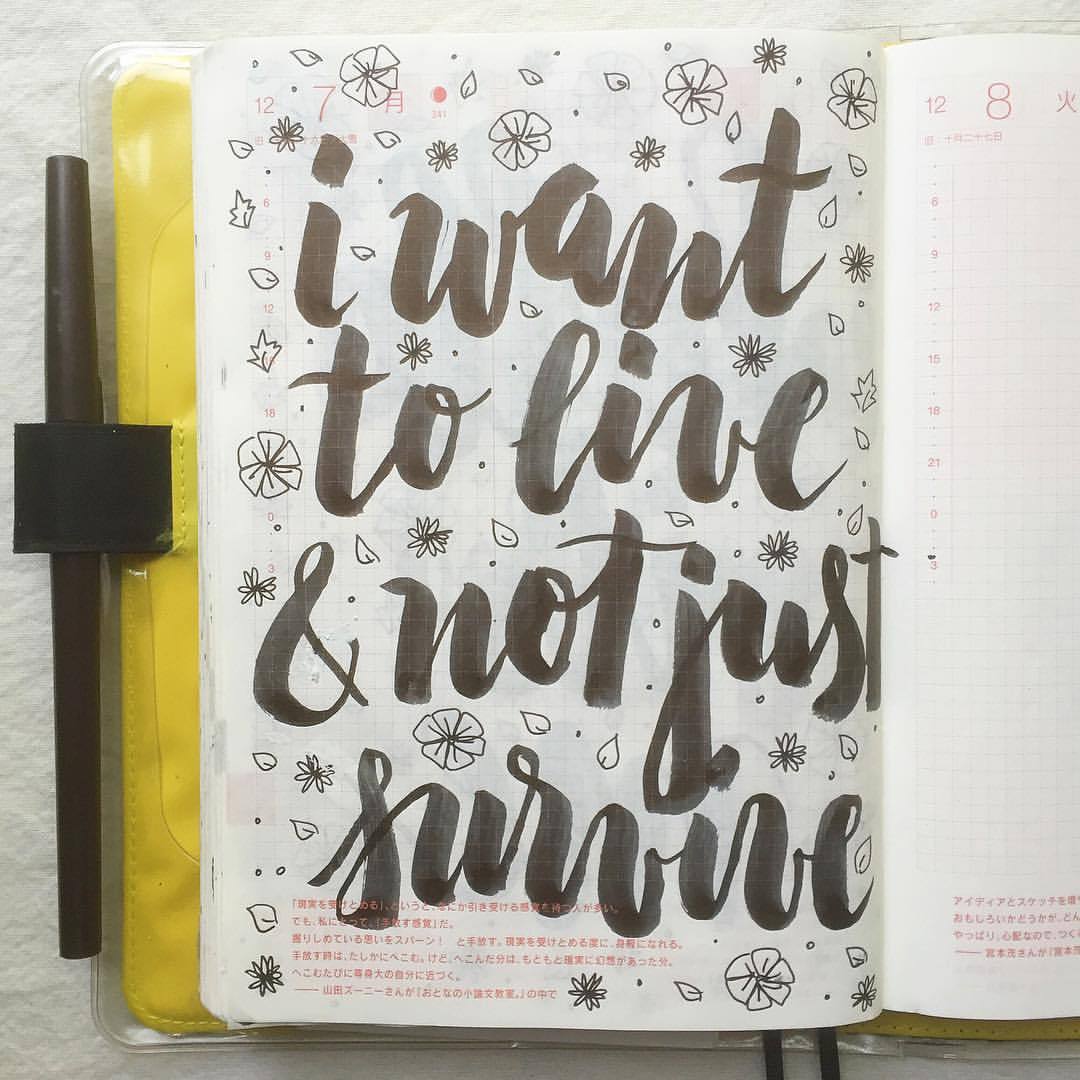 12 7 月
341
i want
to live
& not just
survive
6
9
12
18
0
3
「現実を受けとめる」、というと、なにか引き受ける感覚を持つ人が多い。
でも、私にとって、「手放す感覚」だ。
握りしめている思いをスパーン! と手放す。現実を受けとめる度に、身軽になれる。
手放す時は、たしかにへこむ。けど、へこんだ分は、もともと確実に幻想があった分。
へこむたびに等身大の自分に近づく。
—— 山田ズーニーさんが『おとなの小論文教室。』の中で
12 8 火
旧 十月二十七日
6
9
12
15
18
21
0
3
アイディアとスケッチを
おもしろいかどうかが、どん
やっぱり、心配なので、つく
—— 宮本茂さんが『宮本茂